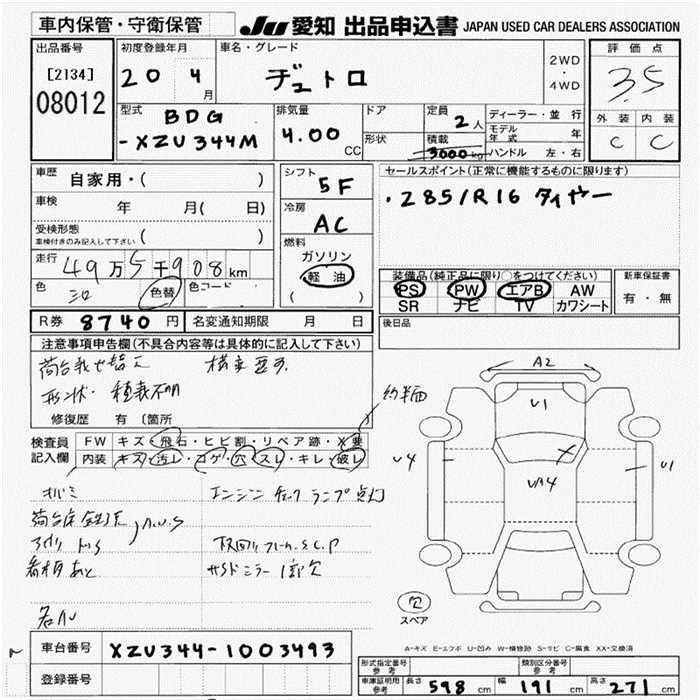 車内保管・守衛保管
JU 愛知 出品申込書 JAPAN USED CAR DEALERS ASSOCIATION
出品番号
[2134]
08012
初度登録年月
20 4
月
車名・グレード
ヂュトロ
2WD
・
4WD
評価点
3.5
外装 内装
C C
型式
BDG
-XZU344M
排気量
4.00
CC
ドア
形状
定員
2人
積載
3000kg
ディーラー・並行
モデル年式 年
ハンドル 左・右
車歴
自家用・( )
車検
年 月( 日)
受検形態
車検付きのみ記入して下さい ( )
走行
49万5千908km
色
シロ
色替
色コード
シフト
5F
冷房
AC
燃料
ガソリン
軽油
( )
セールスポイント(正常に機能するものに限ります)
・285/R16 タイヤー
装備品(純正品に限り○をつけてください)
PS PW エアB AW
SR ナビ TV カワシート
新車保証書
有・無
後日品
R券 8740円
名変通知期限 月 日
注意事項申告欄(不具合内容等は具体的に記入して下さい)
形状・積載不明
修復歴 有 〔箇所
検査員
記入欄
FW キズ・飛石・ヒビ割・リペア跡・X要
内装 キズ・汚レ・コゲ・穴・スレ・キレ・破レ
約半面
エンジン チェックランプ点灯
A2
U1
U4
UA4
U1
穴
スペア
A-キズ E-エクボ U-凹み W-補修跡 S-サビ C-腐食 XX-交換済
車台番号
XZU344-1003493
登録番号
型式指定番号
参考
類別区分番号
参考
車庫証明用
参考
長さ 598 cm 幅 191 cm 高さ 271 cm